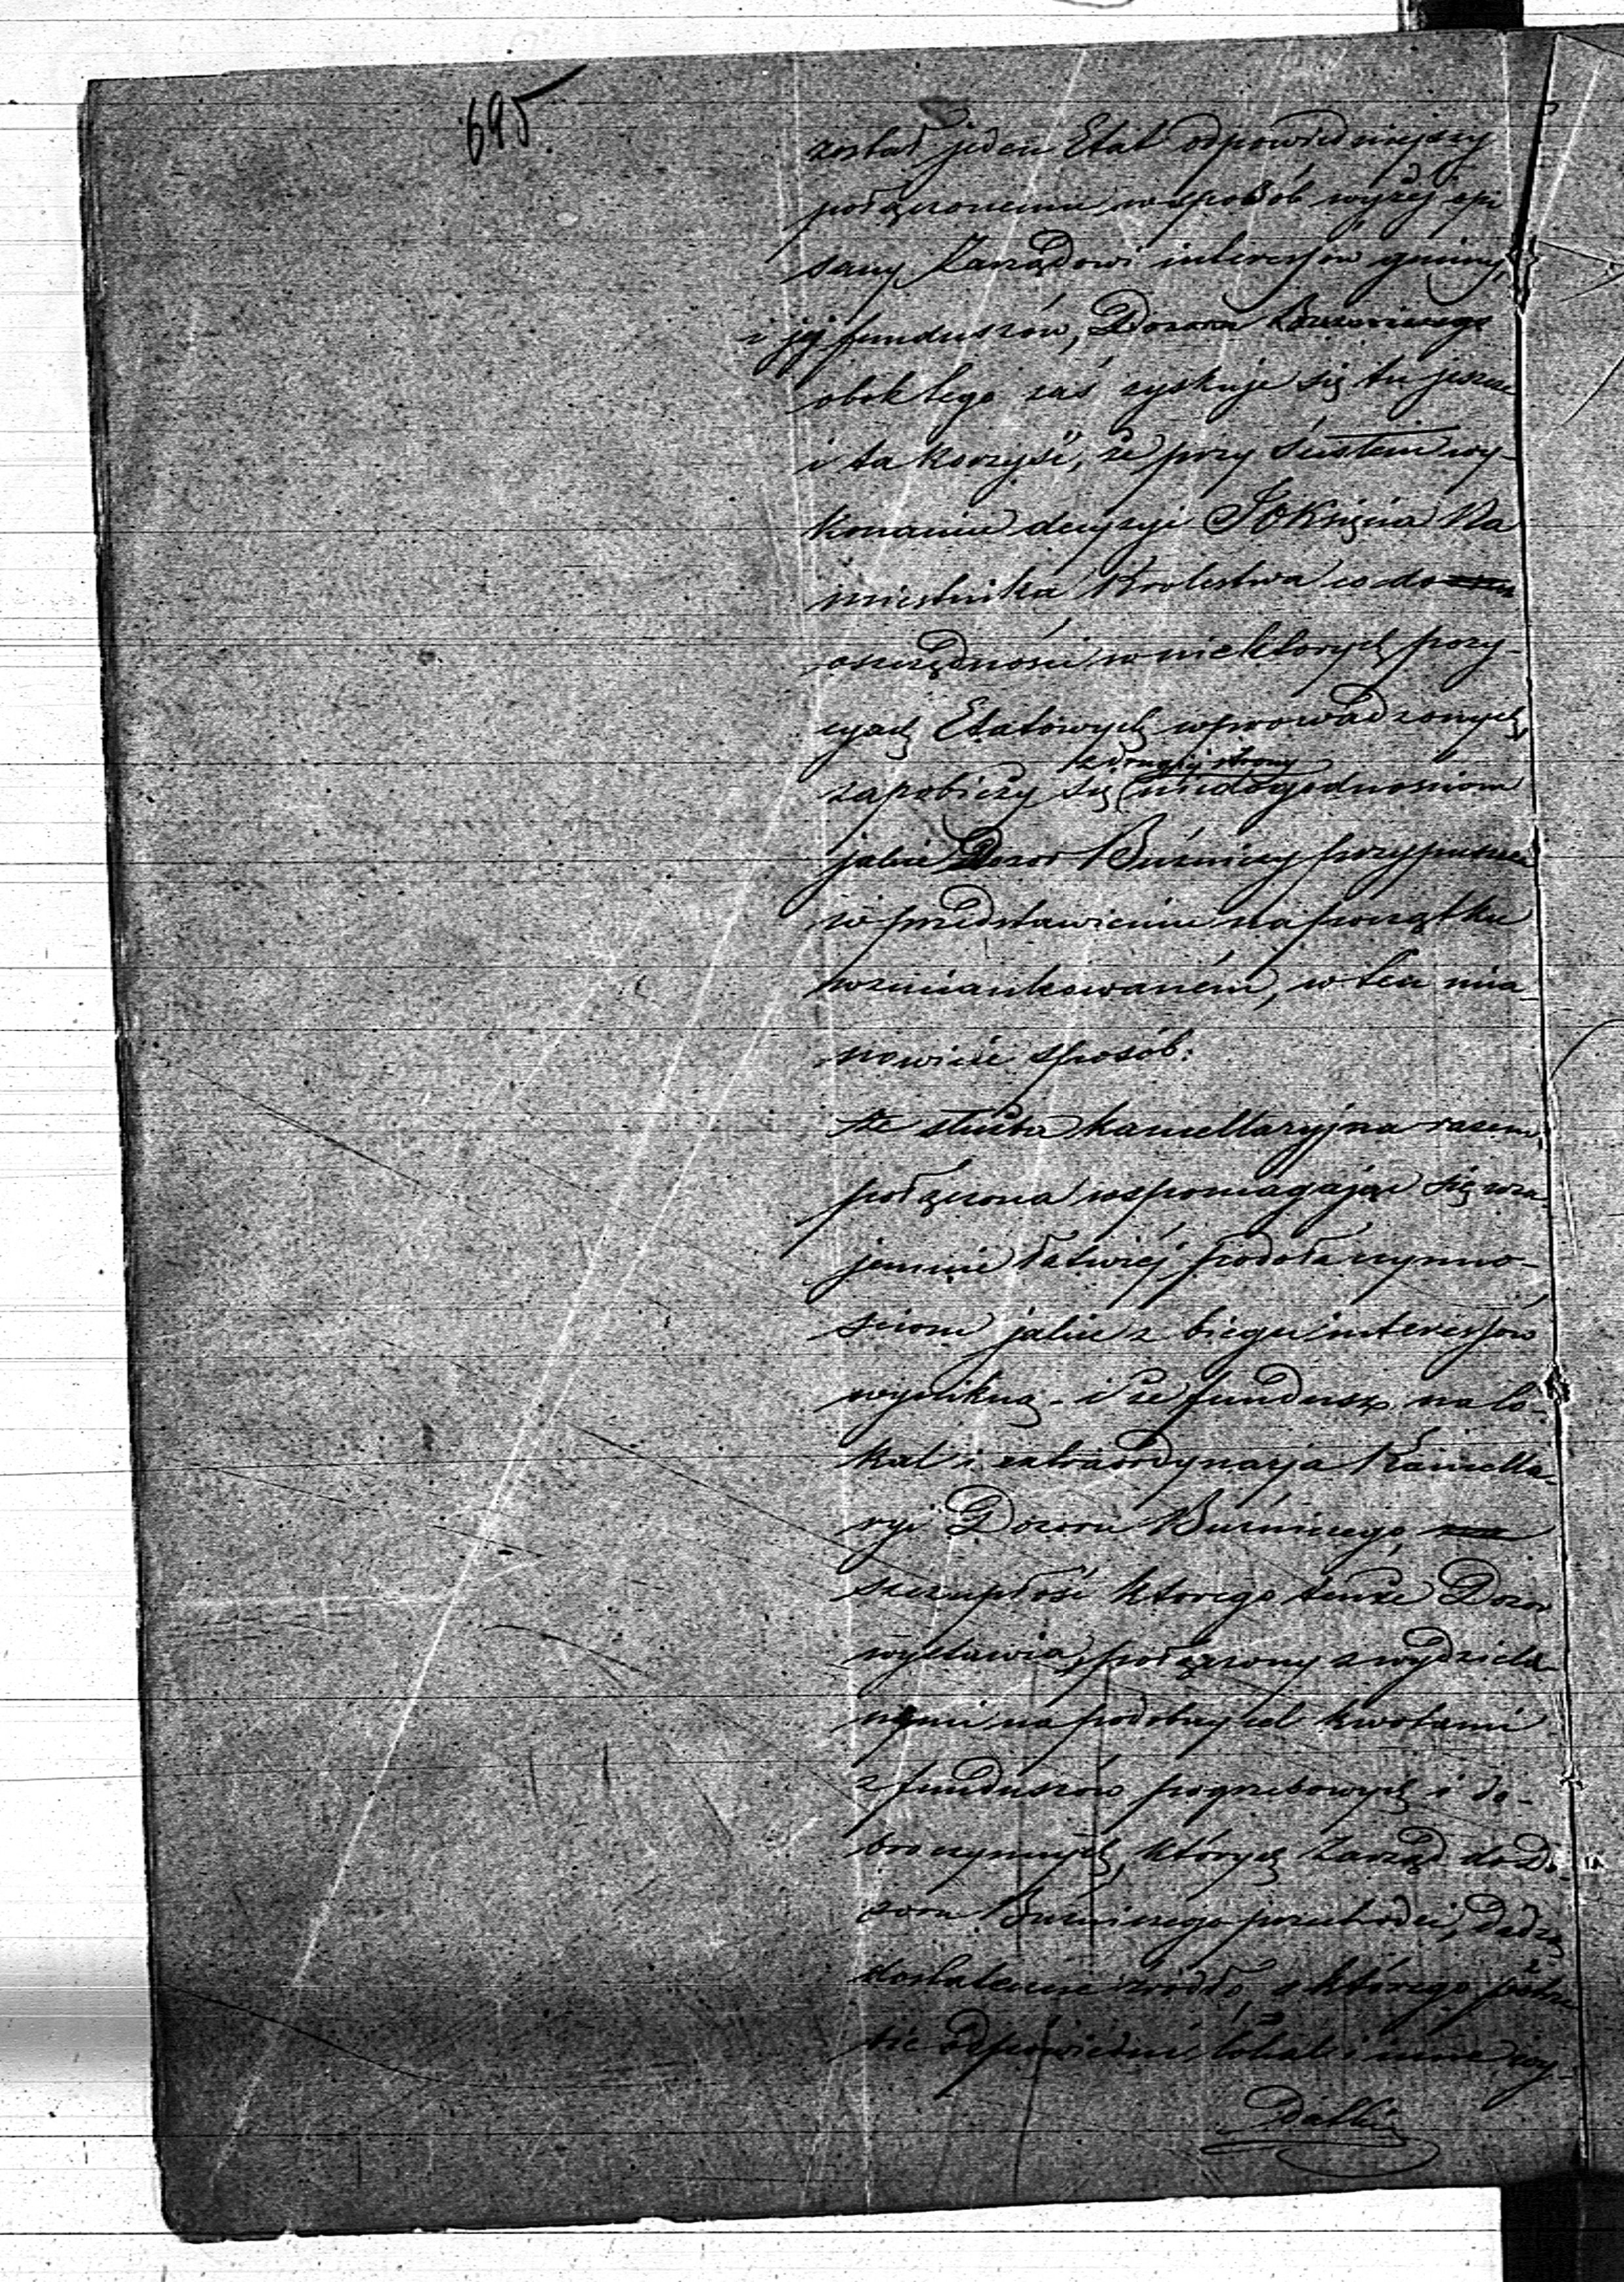 695.
został jeden Etat odpowiedniejszy
połączonemu w sposób wyżej opi
sany Zarządowi interessów gminy
i jej funduszów,
obok tego zaś zyskuje się tu jeszcze
i ta korzyść, że przy ścisłem wy-
konaniu decyzyi JO Księcia Na
miestnika Krolestwa co do
oszczędności w niektorych pozy-
cyach Etatowych wprowadzonych,
z drugiej strony
zapobieży się niedogodnosciom
jakie Dozor Bużniczy przypuszcza
w przedstawieniu na początku
wzmiankowaném, w ten mia-
nowicie sposób:
że służba kancellaryjna razem
połączona wspomagając się wza
jemnie łatwiéj podoła czynno-
sciom jakie z biegu interessów
wynikną - i że fundusz na lo-
kal i extraordynarja Kancella-
ryi Dozoru Bużniczego
szczupłość ktorego tenże Dozor
wystawia, połączony z wydziela-
nymi na podobny cel kwotami
z funduszów pogrzebowych i do-
broczynnych, których Zarząd do Do
zoru Bużniczego przechodzi, dadzą
dostateczne źródło, z którego
odpowiedni lokal i inne wy-